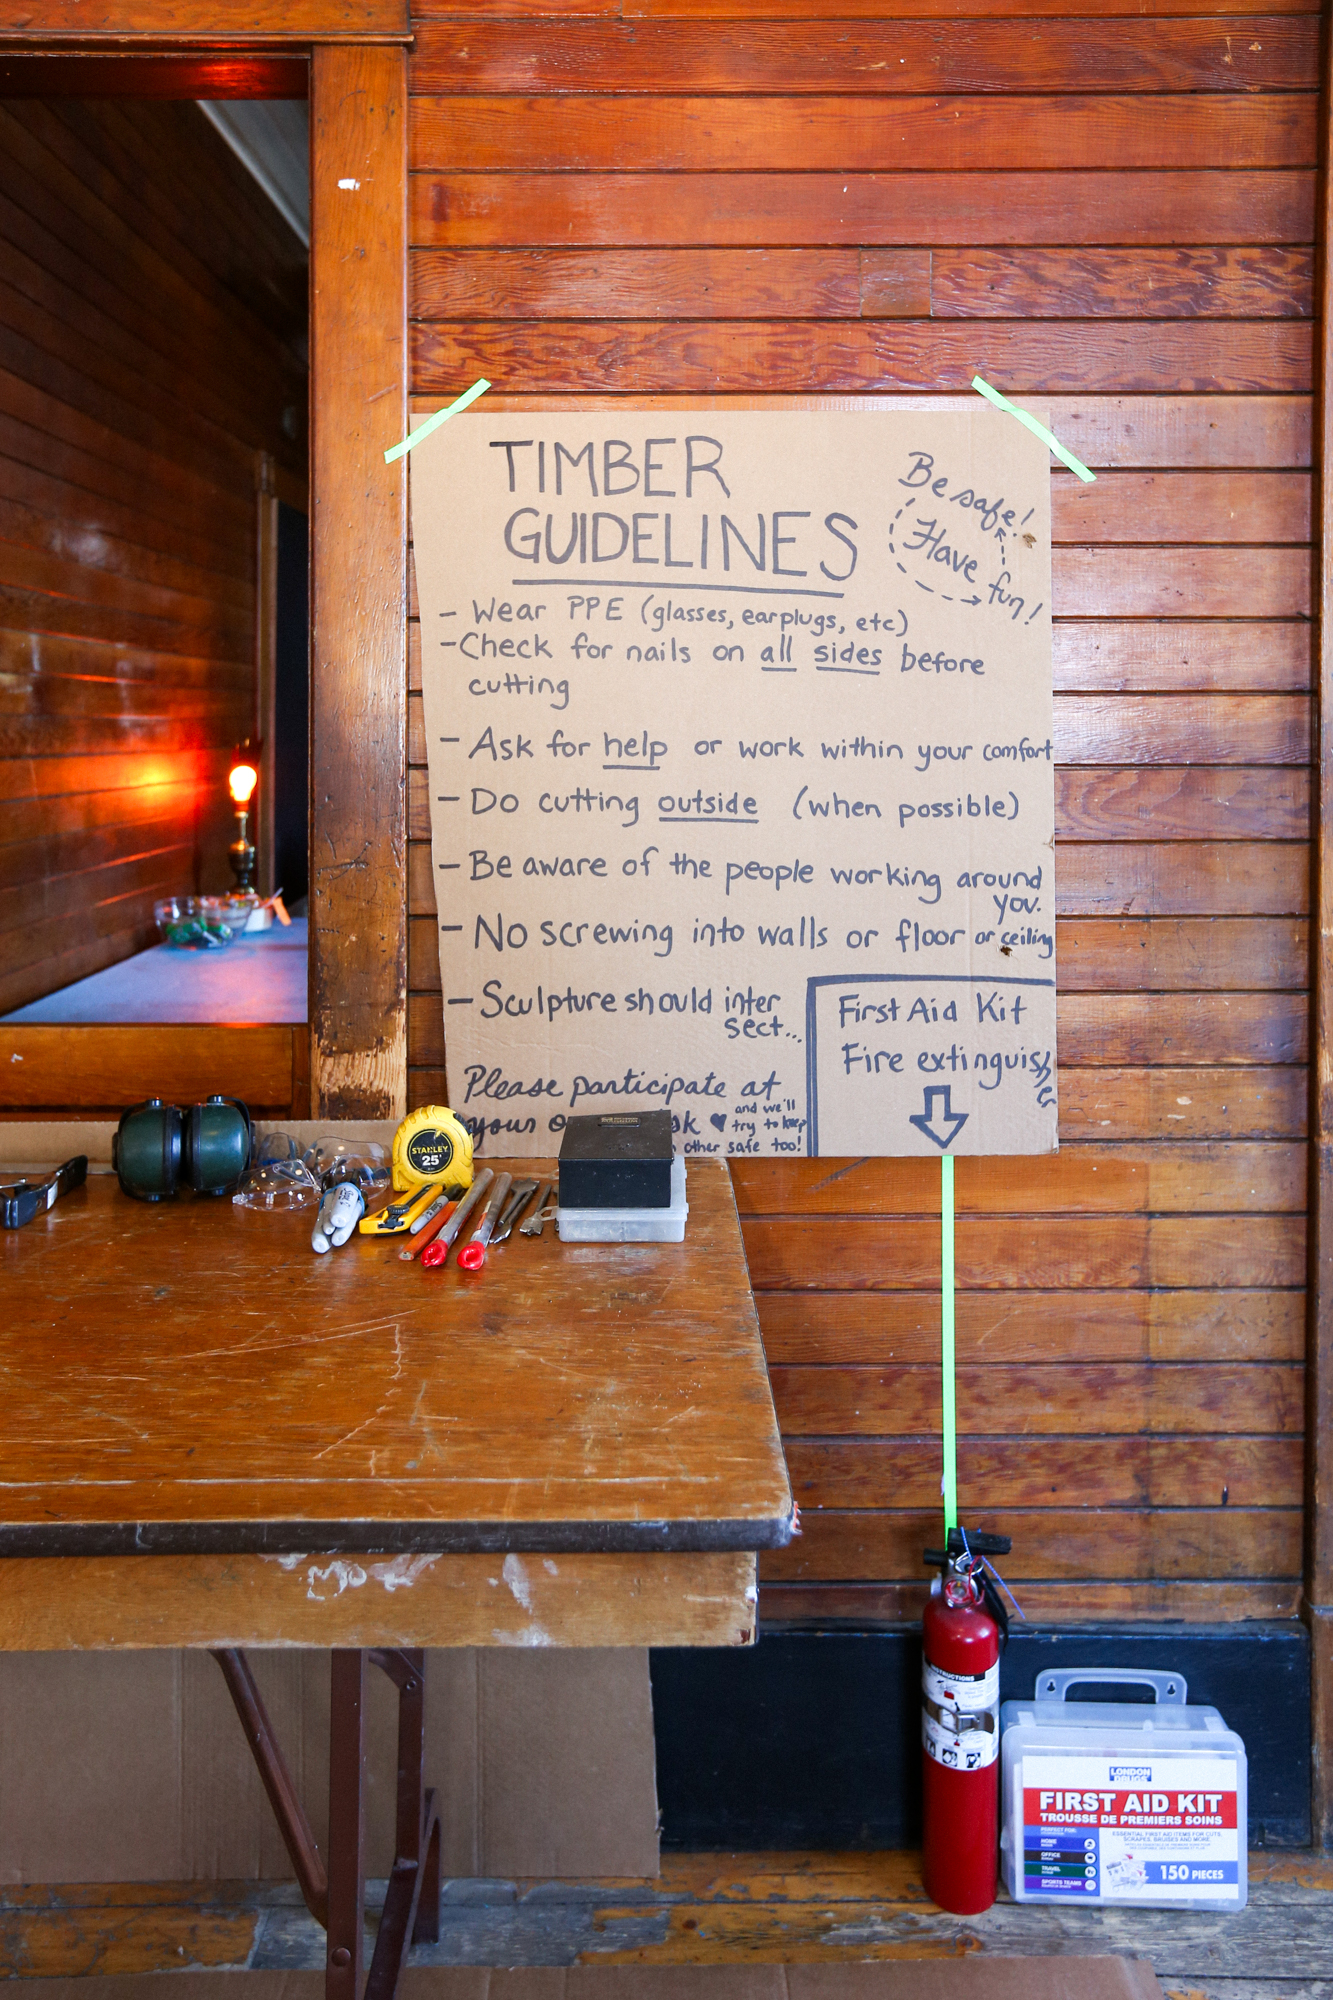 TIMBER
GUIDELINES
Be safe!
Have fun!
- Wear PPE (glasses, earplugs, etc)
- Check for nails on all sides before
cutting
- Ask for help or work within your comfort
- Do cutting outside (when possible)
- Be aware of the people working around
you.
- No screwing into walls or floor or ceiling
- Sculpture should inter
sect...
Please participate at
your
and we'll
try to keep
other safe too!
First Aid Kit
Fire extinguisher
STANLEY
25'
INSTRUCTIONS
LONDON
DRUGS
FIRST AID KIT
TROUSSE DE PREMIERS SOINS
PERFECT FOR:
ESSENTIAL FIRST AID ITEMS FOR CUTS,
SCRAPES, BRUISES AND MORE
HOME
OFFICE
TRAVEL
SPORTS TEAMS
150 PIECES